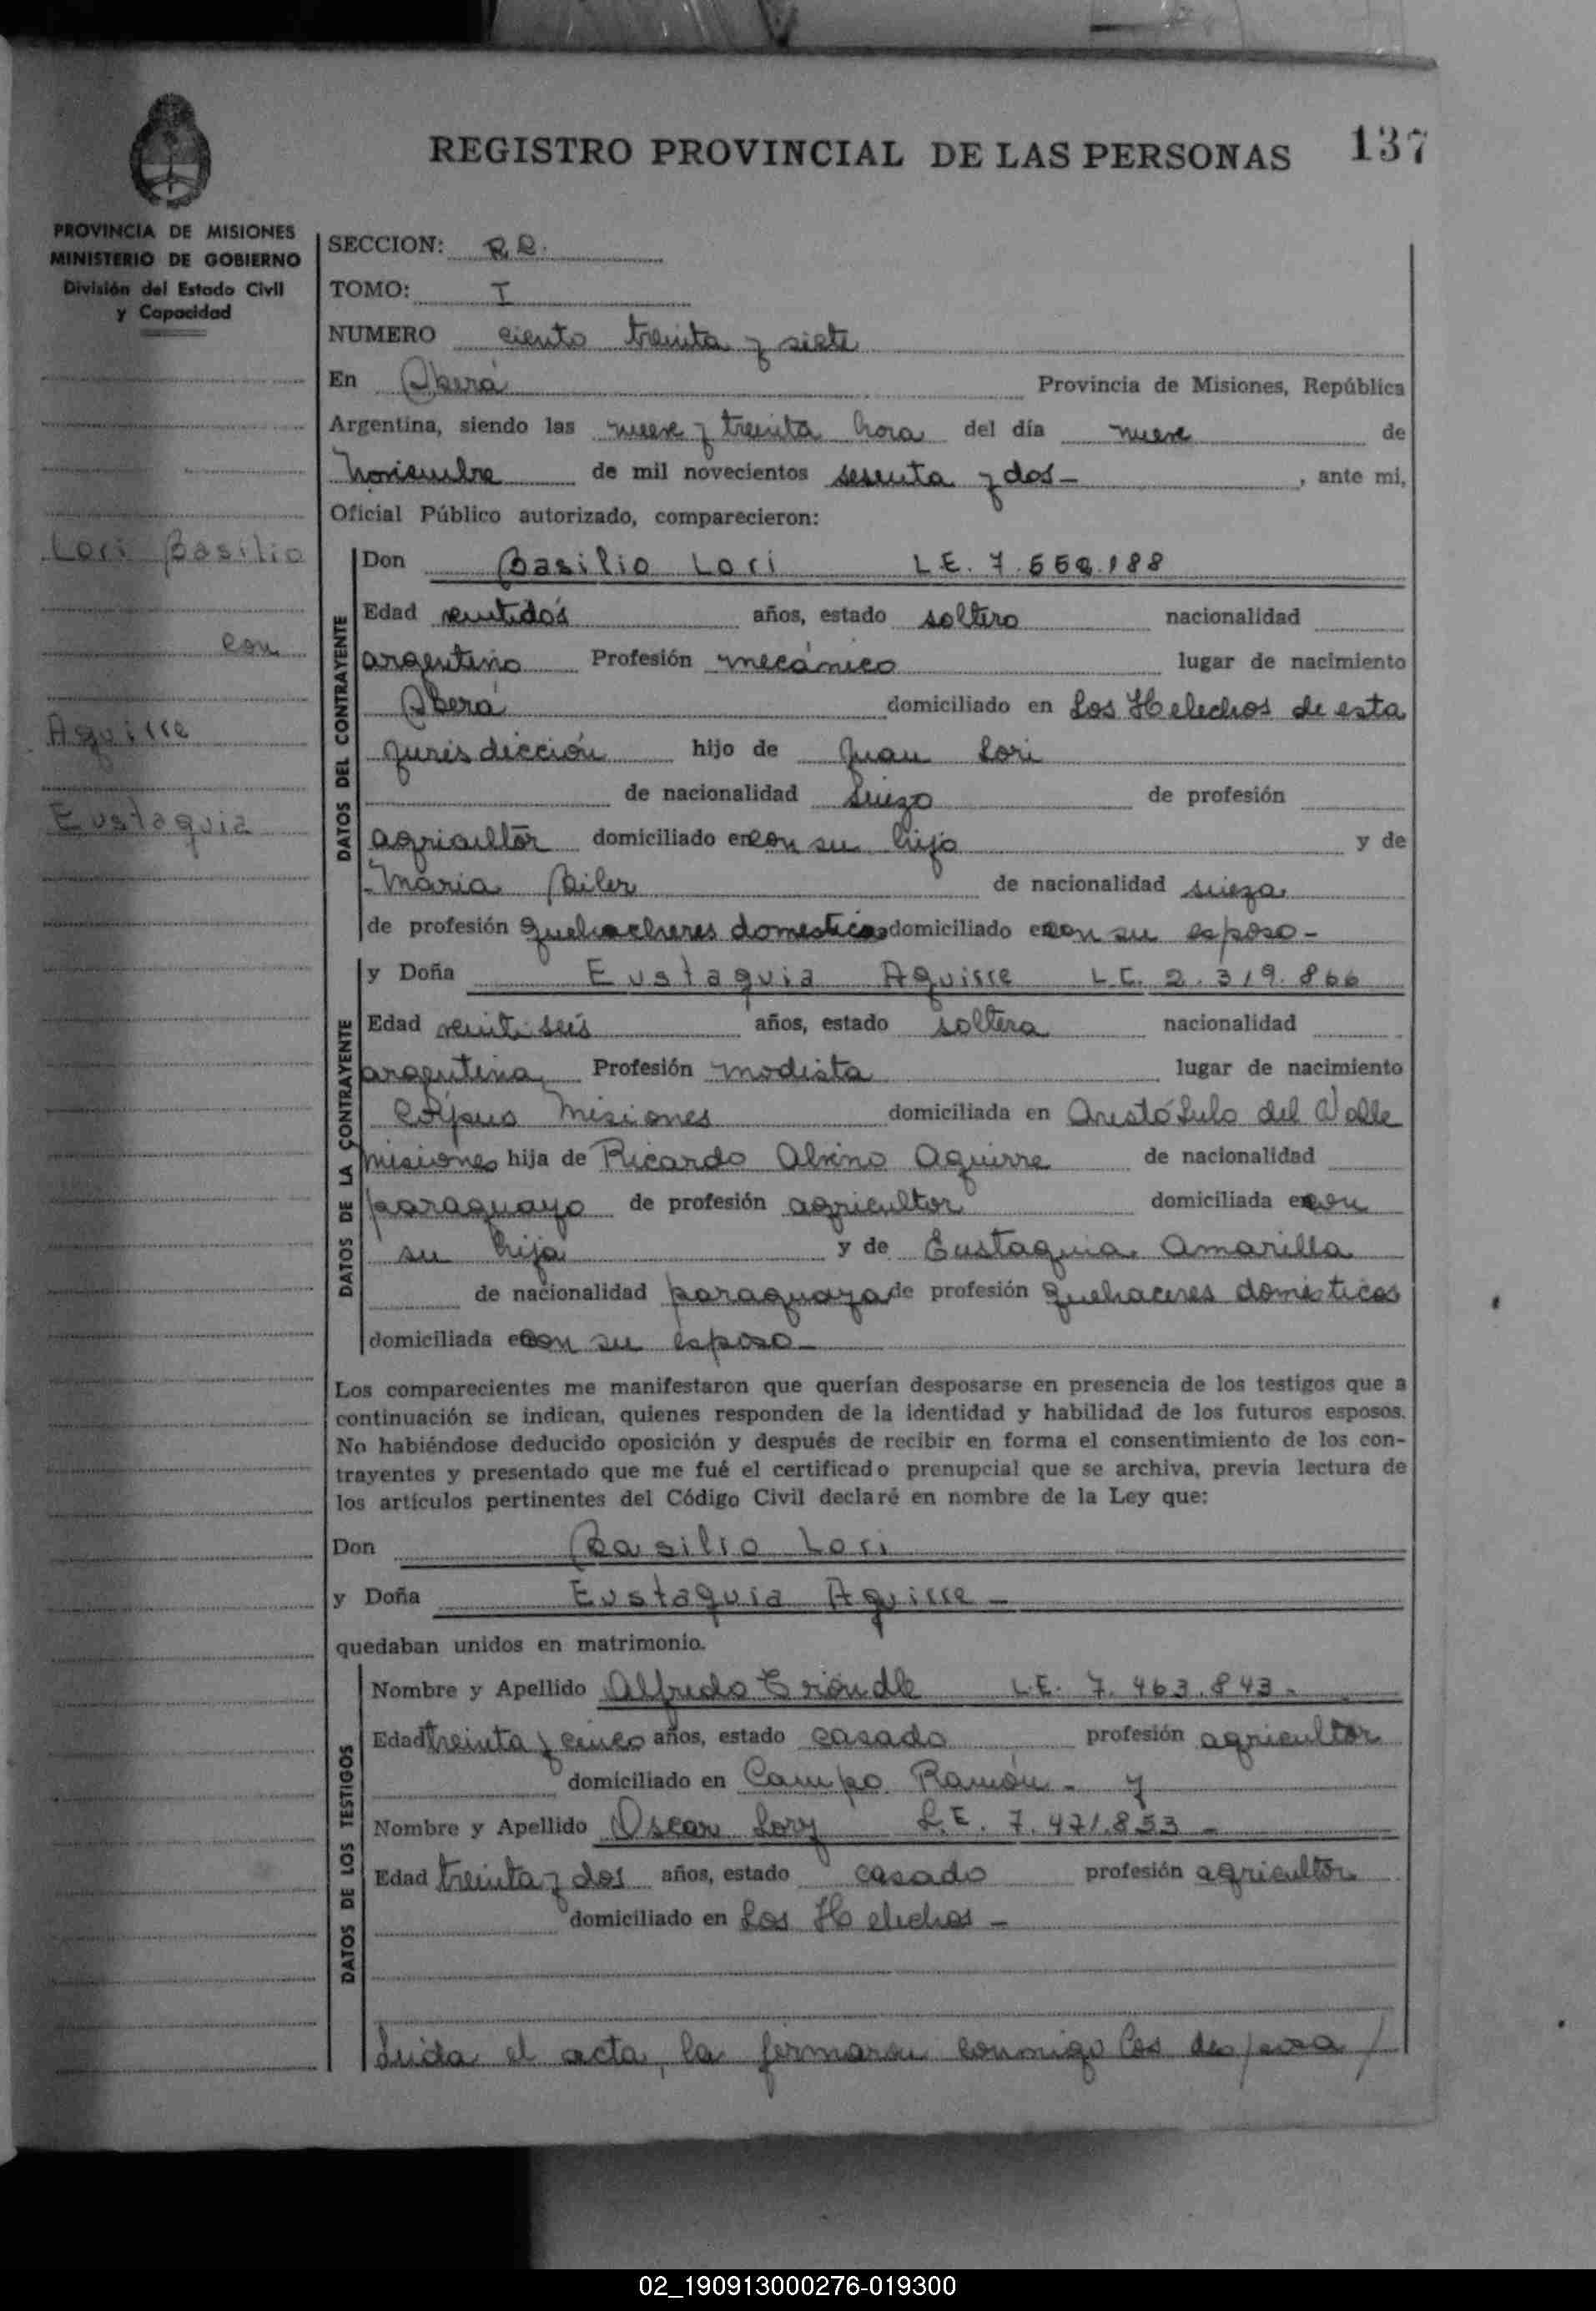 REGISTRO PROVINCIAL DE LAS PERSONAS 137
PROVINCIA DE MISIONES
MINISTERIO DE GOBIERNO
División del Estado Civil
y Capacidad
Lori Basilio
con
Aguirre
Eustaquia
SECCION: R.R.
TOMO: I
NUMERO ciento treinta y siete
En Oberá Provincia de Misiones, República
Argentina, siendo las nueve y treinta hora del día nueve de
noviembre de mil novecientos sesenta y dos- , ante mi,
Oficial Público autorizado, comparecieron:
DATOS DEL CONTRAYENTE
Don Basilio Lori L.E. 7.55 .188
Edad veintidós años, estado soltero nacionalidad
argentino Profesión mecánico lugar de nacimiento
Oberá domiciliado en Los Helechos de esta
jurisdicción hijo de Juan Lori
de nacionalidad Suizo de profesión
agricultor domiciliado en con su hijo y de
Maria de nacionalidad suiza
de profesión domesticos domiciliado en con su esposo-
DATOS DE LA CONTRAYENTE
y Doña Eustaquia Aguirre L.C. 2.319.866
Edad veintiseis años, estado soltera nacionalidad
argentina Profesión modista lugar de nacimiento
Corpus Misiones domiciliada en Aristóbulo del Valle
misiones hija de Ricardo Aguirre de nacionalidad
paraguayo de profesión agricultor domiciliada en con
su hija y de Eustaquia Amarilla
de nacionalidad paraguaya de profesión quehaceres domésticos
domiciliada en con su esposo-
Los comparecientes me manifestaron que querían desposarse en presencia de los testigos que a
continuación se indican, quienes responden de la identidad y habilidad de los futuros esposos.
No habiéndose deducido oposición y después de recibir en forma el consentimiento de los con-
trayentes y presentado que me fué el certificado prenupcial que se archiva, previa lectura de
los artículos pertinentes del Código Civil declaré en nombre de la Ley que:
Don Basilio Lori
y Doña Eustaquia Aguirre -
quedaban unidos en matrimonio.
DATOS DE LOS TESTIGOS
Nombre y Apellido Alfredo L.E. 7.463.843-
Edad treinta y cinco años, estado casado profesión agricultor
domiciliado en Campo Ramón - y
Nombre y Apellido Oscar Lory L.E. 7.471.853-
Edad treinta y dos años, estado casado profesión agricultor
domiciliado en Los Helechos -
Leida el acta, la firmaron conmigo los desposa/
02_190913000276-019300